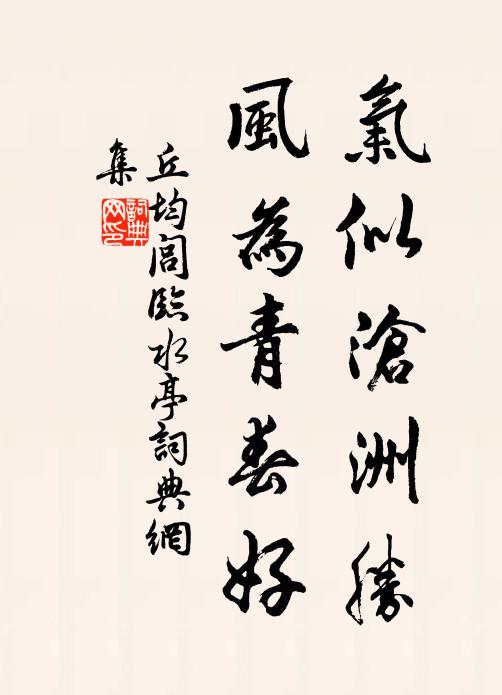 氣似滄洲勝
風為青春好
丘均閻臨水亭詞典網
集
詞典
网印